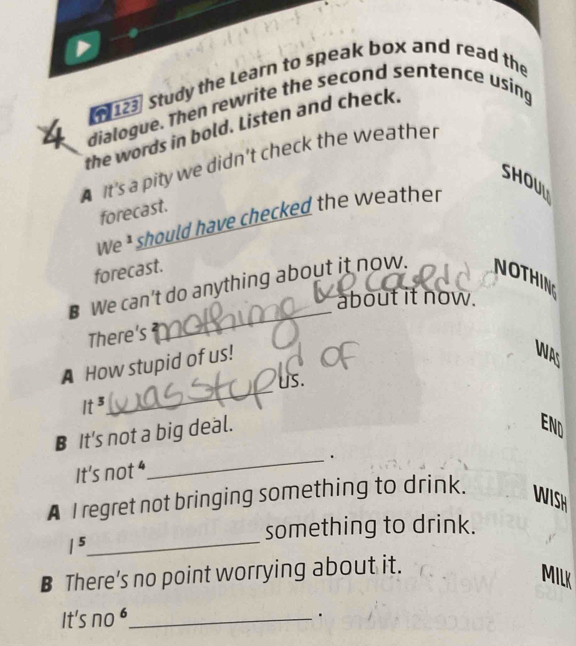 4 123 Study the Learn to speak box and read the
dialogue. Then rewrite the second sentence using
the words in bold. Listen and check.
A It's a pity we didn't check the weather
forecast. SHOULD
We 1 should have checked the weather
forecast.
B We can't do anything about it now. NOTHING
There's 2 nothing we could do about it now.
A How stupid of us! WAS
It 3 was stupid of us.
B It's not a big deal. END
It's not 4 ____________.
A I regret not bringing something to drink. WISH
I 5 ____________ something to drink.
B There's no point worrying about it. MILK
It's no 6 ____________.